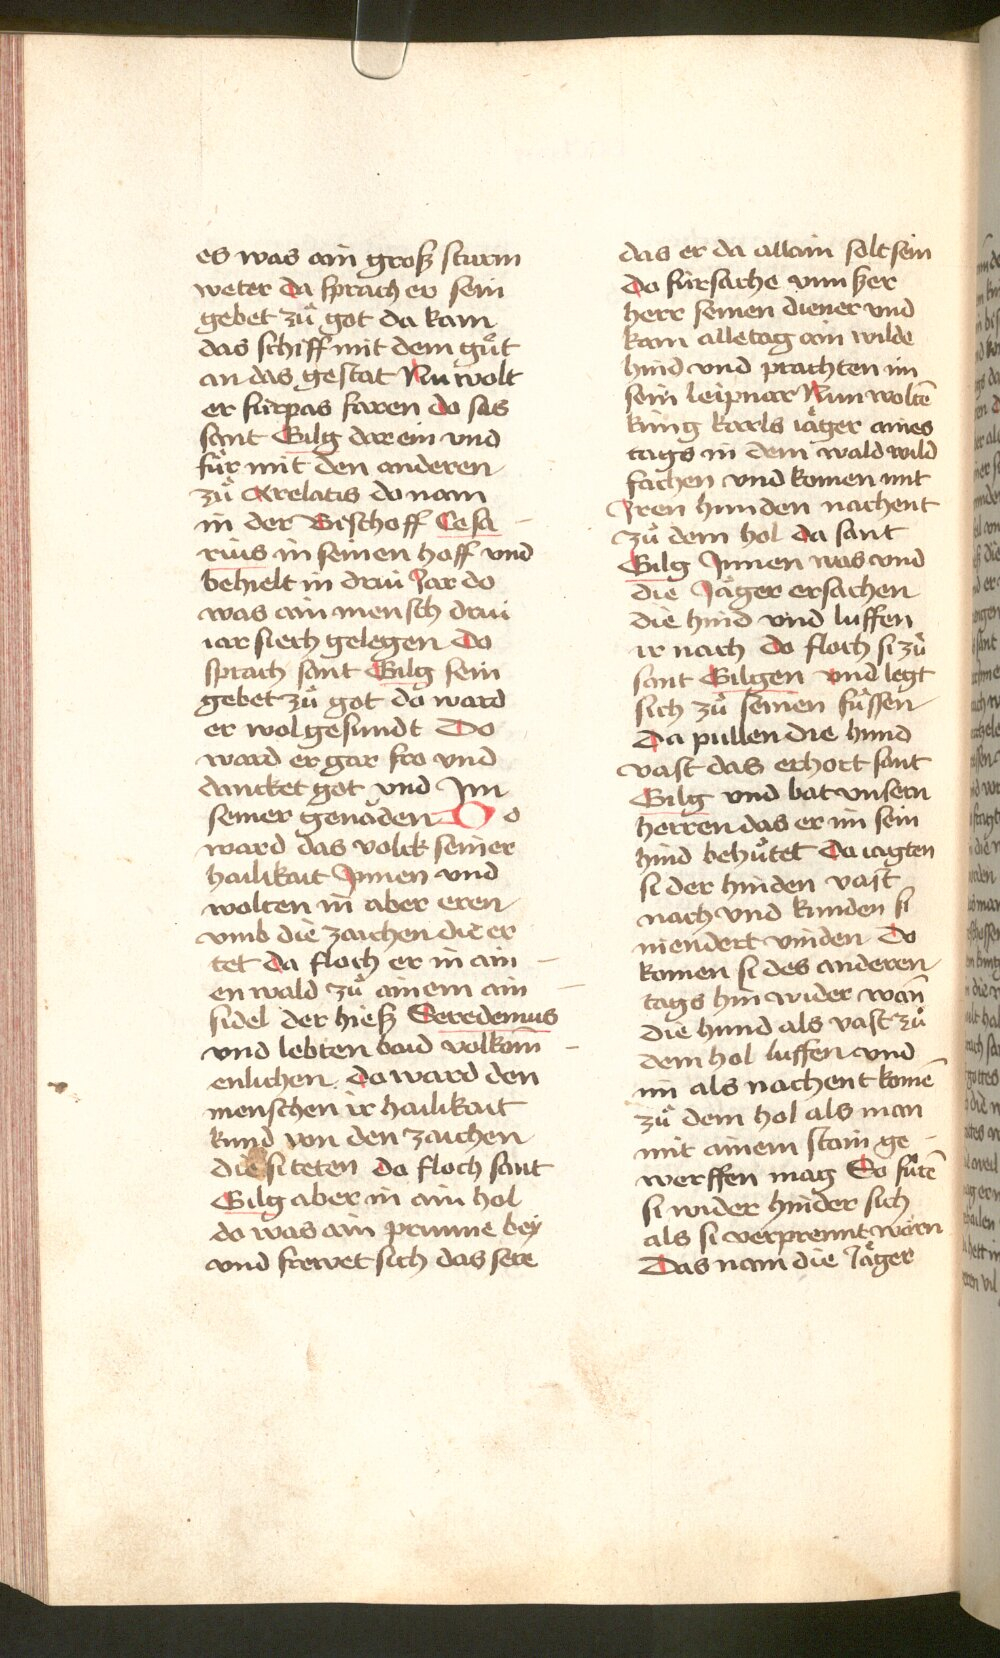 es was ain groß sturm
weter da sprach er sein
gebet zů got da kam
das schiff mit dem gůt
an das gestat Nu wolt
er fürpas faren do sas
sant Gilg dar ein und
fůr mit den anderen
zů Arelatis do nam
in der Bischoff Cesa
rius in seinen hoff vnd
behielt in drui Jar do
was ain mensch drui
iar siech gelegen Do
sprach sant Gilg sein
gebet zů got do ward
er wol gesundt Do
ward er gar fro vnd
dancket got vnd Im
seiner genaden Do
ward das volck seiner
hailikait Jnnen vnd
wolten in aber eren
vmb die zaichen die er
tet da floch er in ain
en wald zů ainem ain
sidel der hieß Veredemius
vnd lebten baid volkom̄
enlichen. da ward den
menschen ir hailikait
kund von den zaichen
die si teten da floch sant
Gilg aber in ain hol
do was ain prunne bey
vnd frewet sich das sere
das er da allain solt sein
Da fürsache vnnßer
herr seinen diener vnd
kam alle tag ain wilde
hind vnd prachten im
sein leipnar Nun wolt̄e
küng karls iäger aines
tags in dem wald wild
fachen vnd komen mit
Iren hunden nachent
zů dem hol da sant
Gilg Jnnen was vnd
die Jäger ersachen
die hind vnd luffen
ir nach do floch si zů
sant Gilgen vnd legt
sich zů seinen füssen
Da pullen die hund
vast das erhort sant
Gilg vnd bat vnsern
herren das er im sein
hind behůtet Da iagten
si der hinden vast
nach vnd kunden si
niendert vinden Do
komen si des anderen
tags hin wider wan̄
die hund als vast zů
dem hol luffen vnd
im als nachent komē
zů dem hol als man
mit ainem stain ge
werffen mag So fůtē
si wider hinder sich
als si verprennt wärn
Das nam die Jäger